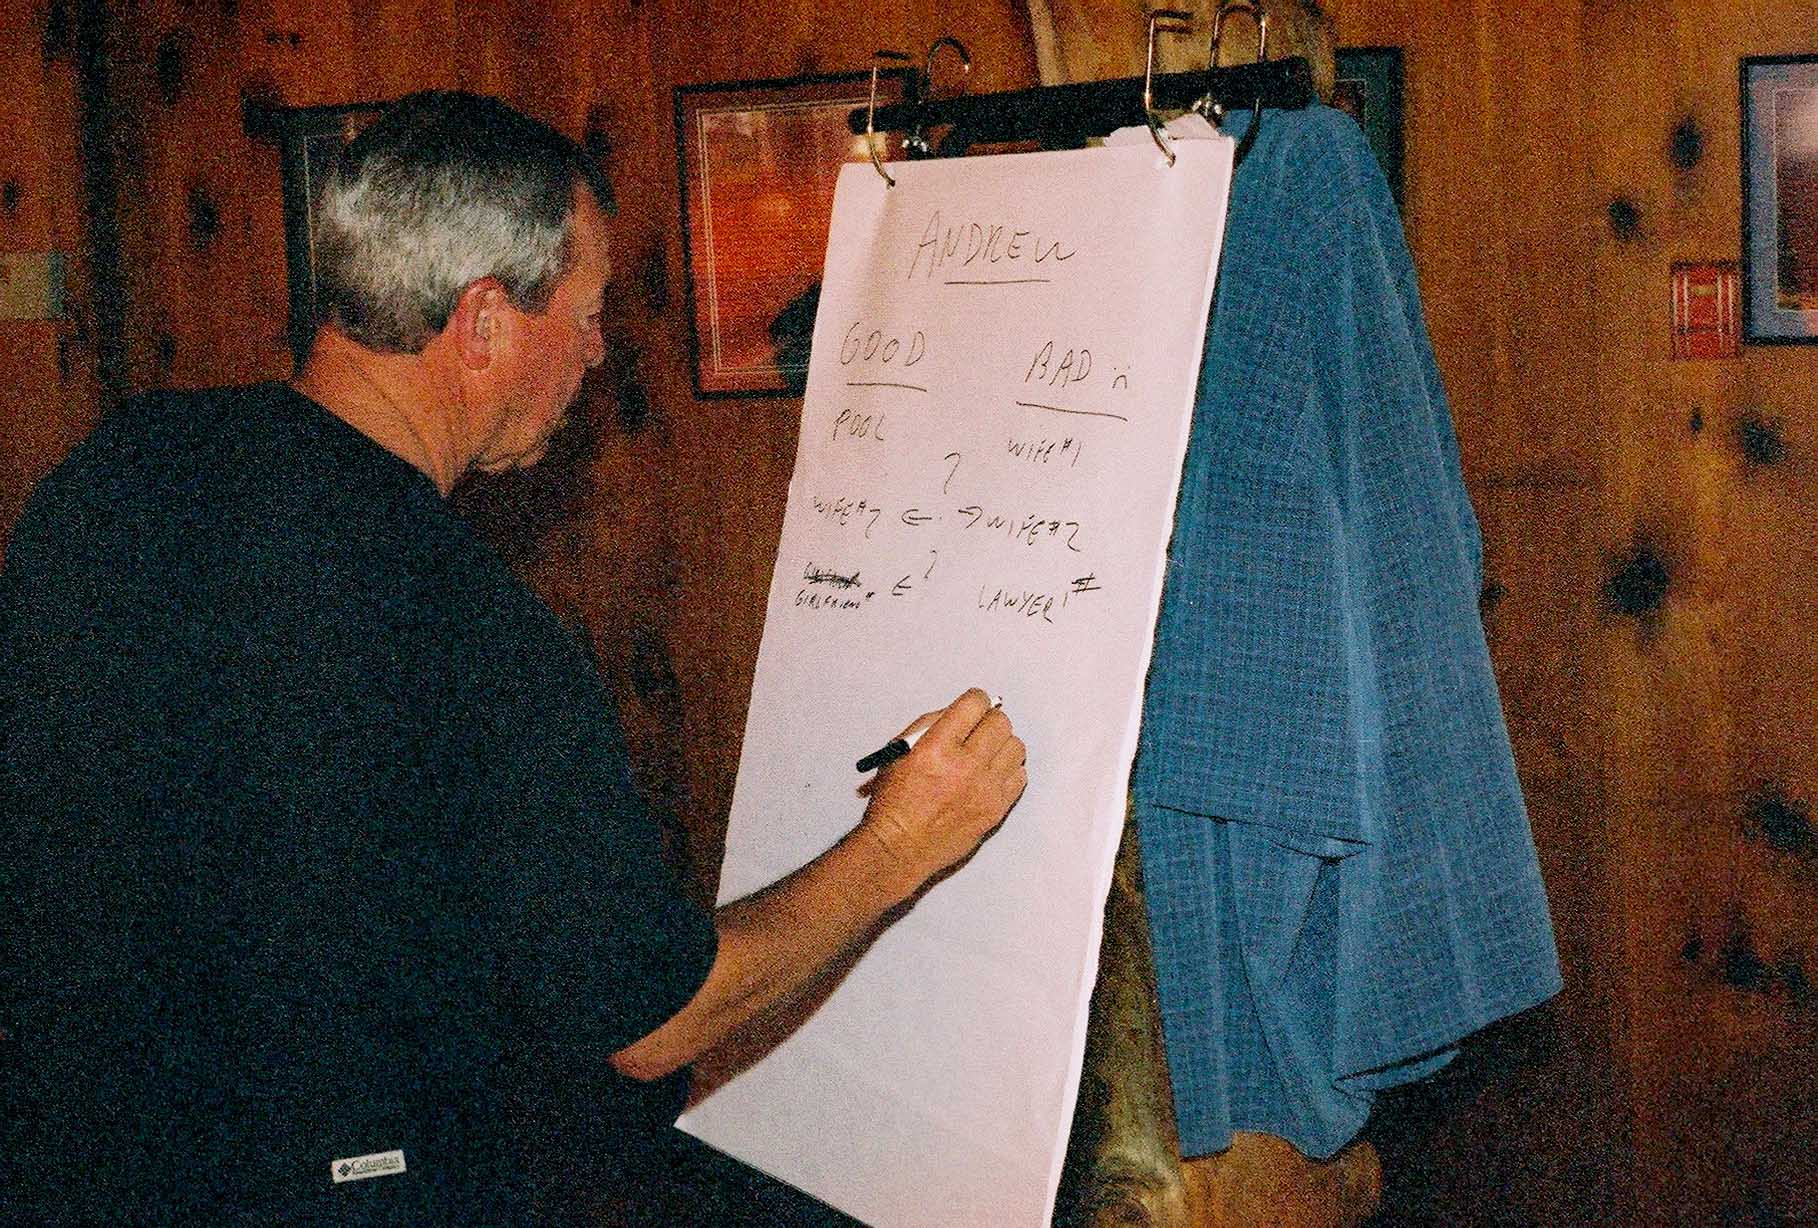 ANDREW
GOOD BAD :(
POOL WIFE #1
?
WIFE #2 ← → WIFE #2
?
GIRLFRIEND # ← LAWYER 1 #
Columbia